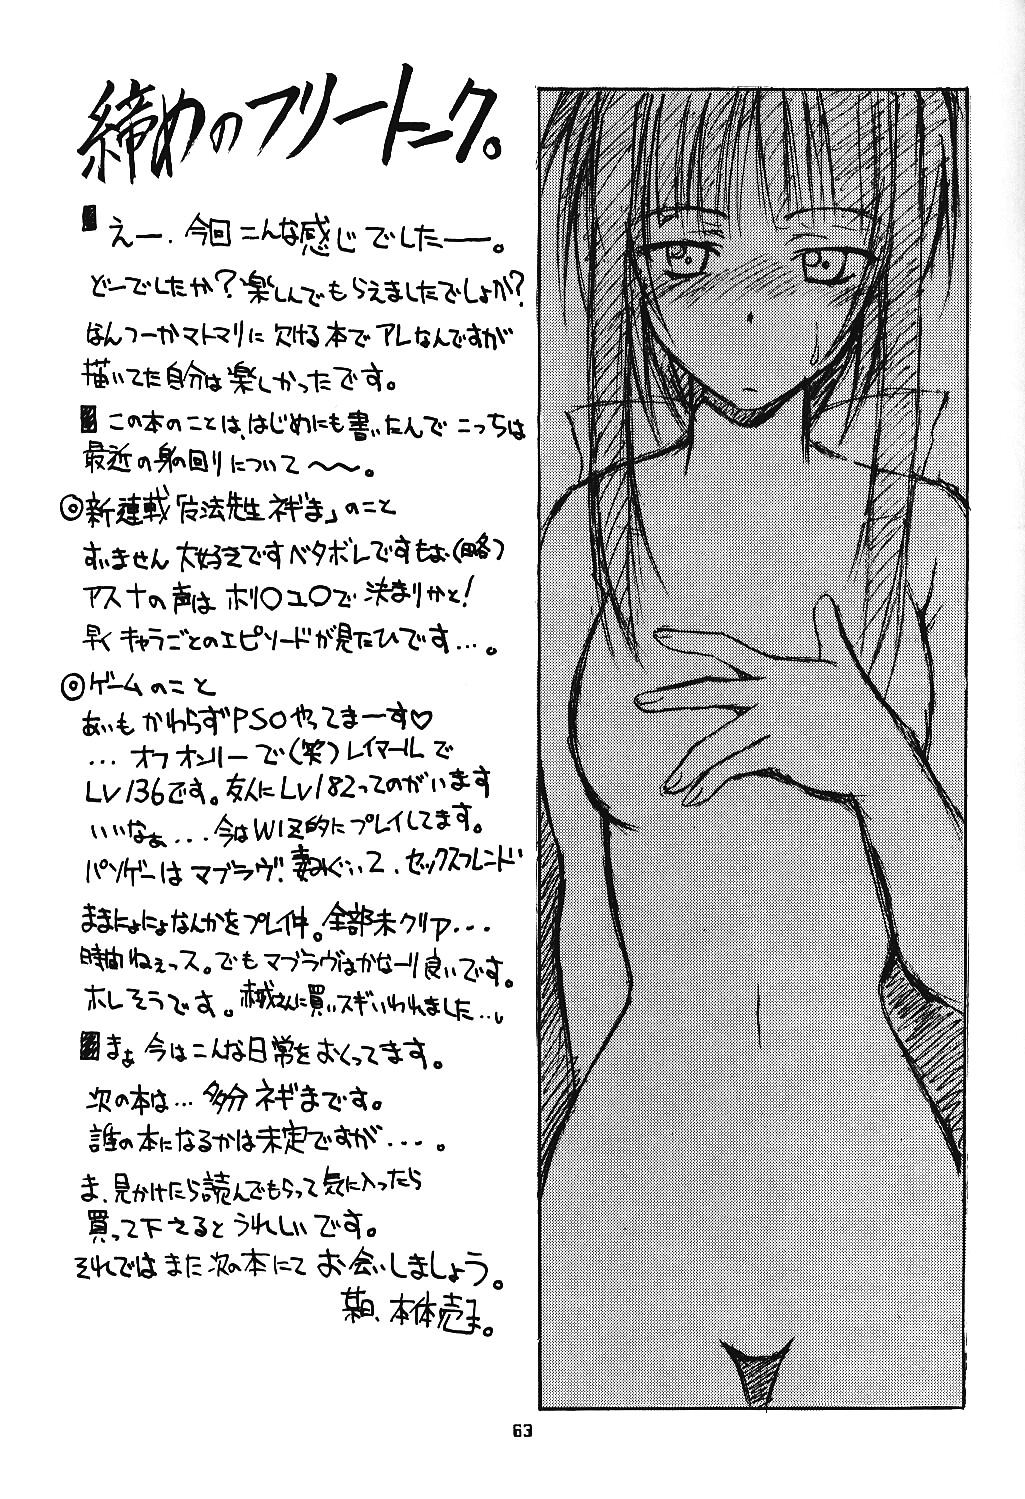 締めのフリートーク。
えー、今回こんな感じでしたー。
どーでしたか?楽しんでもらえましたでしょか?
なんつーかマトマリに欠ける本でアレなんですが
描いてた自分は楽しかったです。
この本のことは、はじめにも書いたんでこっちは
最近の身の回りについて〜〜。
◎新連載「魔法先生ネギま」のこと
すいません大好きですベタボレですもぉ(略)
アスナの声はホリ○ユ○で決まりかと!
早くキャラごとのエピソードが見たひです...。
◎ゲームのこと
あいもかわらずPSOやってまーす♡
...オフオンリーで(笑)レイマールで
LV136です。友人にLV182ってのがいます
いいなぁ...今はWIZ的にプレイしてます。
パソゲーはマブラヴ、妻みぐい2、セックスフレンド
ままにょにょなんかをプレイ中。全部未クリア...
時間ねぇっス。でもマブラヴはかなーり良いです。
ホレそうです。さんに買いスギいわれました...。
まぁ今はこんな日常をおくってます。
次の本は...多分ネギまです。
誰の本になるかは未定ですが...。
ま、見かけたら読んでもらって気に入ったら
買って下さるとうれしいです。
それではまた次の本にてお会いしましょう。
某日、本体の壱ま。
63